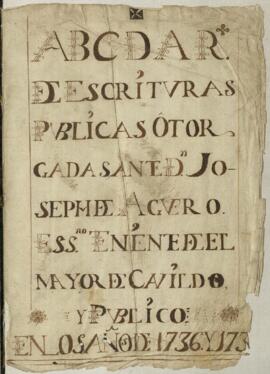 ABCDAR.º
DE ESCRITVRAS
PVBLICAS ÔTOR
GADAS ANTE Dⁿ JO-
SEPH DE AGVERO.
ESS.ⁿᵒ TENIENTE DE EL
MAYOR DE CAVILDO,
Y PVBLICO
EN LOS AÑOS DE 1736. Y 173